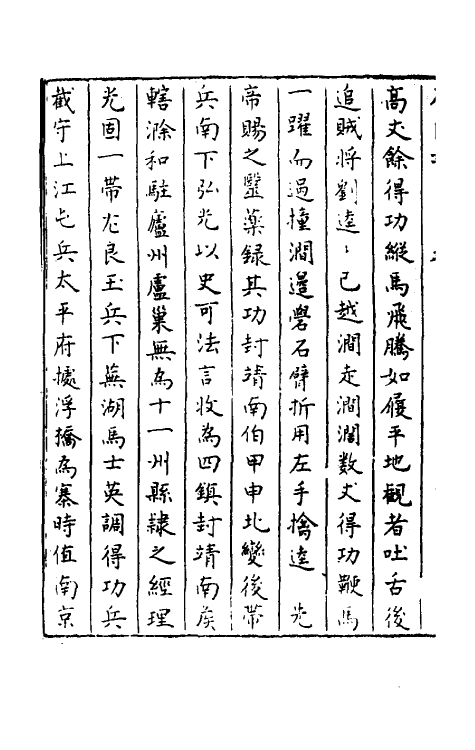 高丈餘得功縱馬飛騰如履平地觀者吐舌後
追賊將劉逵〻已越澗走澗濶数丈得功鞭馬
一躍而過撞澗邉礐石臂折用左手擒逵　先
帝賜之毉藥録其功封靖南伯甲申北變後帶
兵南下弘光以史可法言收為四鎮封靖南侯
轄滁和駐廬州廬巢無為十一州縣隷之經理
光固一帶左良玉兵下蕪湖馬士英調得功兵
截守上江屯兵太平府據浮橋為寨時值南京